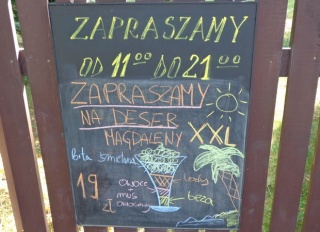 ZAPRASZAMY
OD 11⁰⁰ DO 21⁰⁰
ZAPRASZAMY
NA DESER
MAGDALENY
XXL
Bita śmietana
lody
19 zł
owoce
+ mus
owocowy
beza